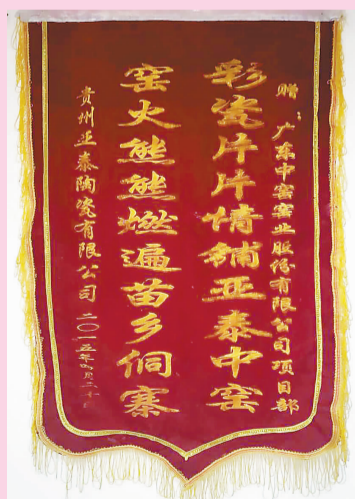 赠：广东中窑窑业股份有限公司项目部
彩瓷片片情铺亚泰中窑
窑火熊熊燃遍苗乡侗寨
贵州亚泰陶瓷有限公司 二〇一五年